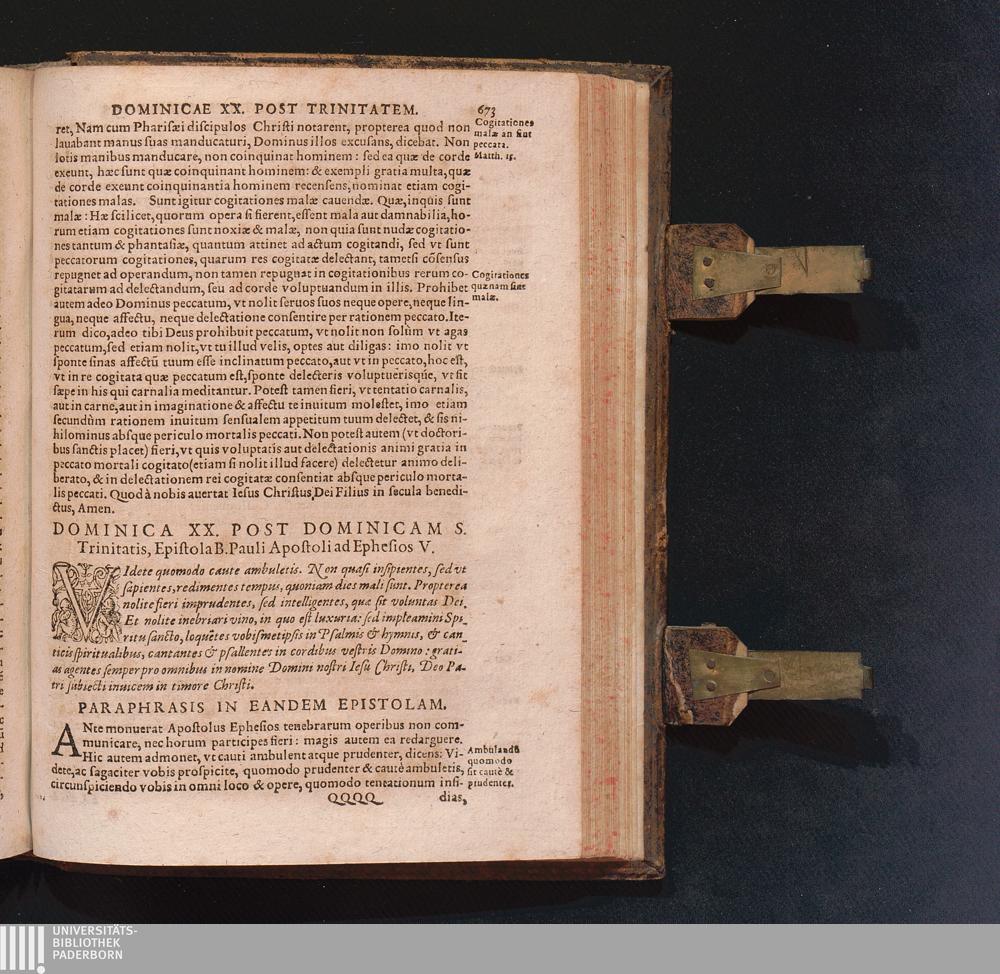 DOMINICAE XX. POST TRINITATEM. 673
ret, Nam cum Pharisæi discipulos Christi notarent, propterea quod non
lauabant manus suas manducaturi, Dominus illos excusans, dicebat. Non
lotis manibus manducare, non coinquinat hominem: sed ea quæ de corde
exeunt, hæc sunt quæ coinquinant hominem: & exempli gratia multa, quæ
de corde exeunt coinquinantia hominem recensens, nominat etiam cogi-
tationes malas. Sunt igitur cogitationes malæ cauendæ. Quæ, inquis sunt
malæ: Hæ scilicet, quorum opera si fierent, essent mala aut damnabilia, ho-
rum etiam cogitationes sunt noxiæ & malæ, non quia sunt nudæ cogitatio-
nes tantum & phantasiæ, quantum attinet ad actum cogitandi, sed vt sunt
peccatorum cogitationes, quarum res cogitatæ delectant, tametsi cõsensus
repugnet ad operandum, non tamen repugnat in cogitationibus rerum co-
gitatarum ad delectandum, seu ad corde voluptuandum in illis. Prohibet
autem adeo Dominus peccatum, vt nolit seruos suos neque opere, neque lin-
gua, neque affectu, neque delectatione consentire per rationem peccato. Ite-
rum dico, adeo tibi Deus prohibuit peccatum, vt nolit non solùm vt agas
peccatum, sed etiam nolit, vt tu illud velis, optes aut diligas: imo nolit vt
sponte sinas affectũ tuum esse inclinatum peccato, aut vt in peccato, hoc est,
vt in re cogitata quæ peccatum est, sponte delecteris voluptuerisque, vt fit
sæpe in his qui carnalia meditantur. Potest tamen fieri, vt tentatio carnalis,
aut in carne, aut in imaginatione & affectu te inuitum molestet, imo etiam
secundùm rationem inuitum sensualem appetitum tuum delectet, & sis ni-
hilominus absque periculo mortalis peccati. Non potest autem (vt doctori-
bus sanctis placet) fieri, vt quis voluptatis aut delectationis animi gratia in
peccato mortali cogitato (etiam si nolit illud facere) delectetur animo deli-
berato, & in delectationem rei cogitatæ consentiat absque periculo morta-
lis peccati. Quod à nobis auertat Iesus Christus, Dei Filius in secula benedi-
ctus, Amen.
Cogitationes
malæ an sint
peccata.
Matth. 15.
Cogitationes
quænam sint
malæ.
DOMINICA XX. POST DOMINICAM S.
Trinitatis, Epistola B. Pauli Apostoli ad Ephesios V.
VIdete quomodo caute ambuletis. Non quasi insipientes, sed vt
sapientes, redimentes tempus, quoniam dies mali sunt. Propterea
nolite fieri imprudentes, sed intelligentes, quæ sit voluntas Dei.
Et nolite inebriari vino, in quo est luxuria: sed impleamini Spi-
ritu sancto, loquẽtes vobismetipsis in Psalmis & hymnis, & can-
ticis spiritualibus, cantantes & psallentes in cordibus vestris Domino: grati-
as agentes semper pro omnibus in nomine Domini nostri Iesu Christi, Deo Pa-
tri subiecti inuicem in timore Christi.
PARAPHRASIS IN EANDEM EPISTOLAM.
ANte monuerat Apostolus Ephesios tenebrarum operibus non com-
municare, nec horum participes fieri: magis autem ea redarguere.
Hic autem admonet, vt cauti ambulent atque prudenter, dicens: Vi-
dete, ac sagaciter vobis prospicite, quomodo prudenter & cautè ambuletis,
circumspiciendo vobis in omni loco & opere, quomodo tentationum insi-
Ambulandũ
quomodo
sit cautè &
prudenter.
QQQQ dias,
UNIVERSITÄTS-
BIBLIOTHEK
PADERBORN